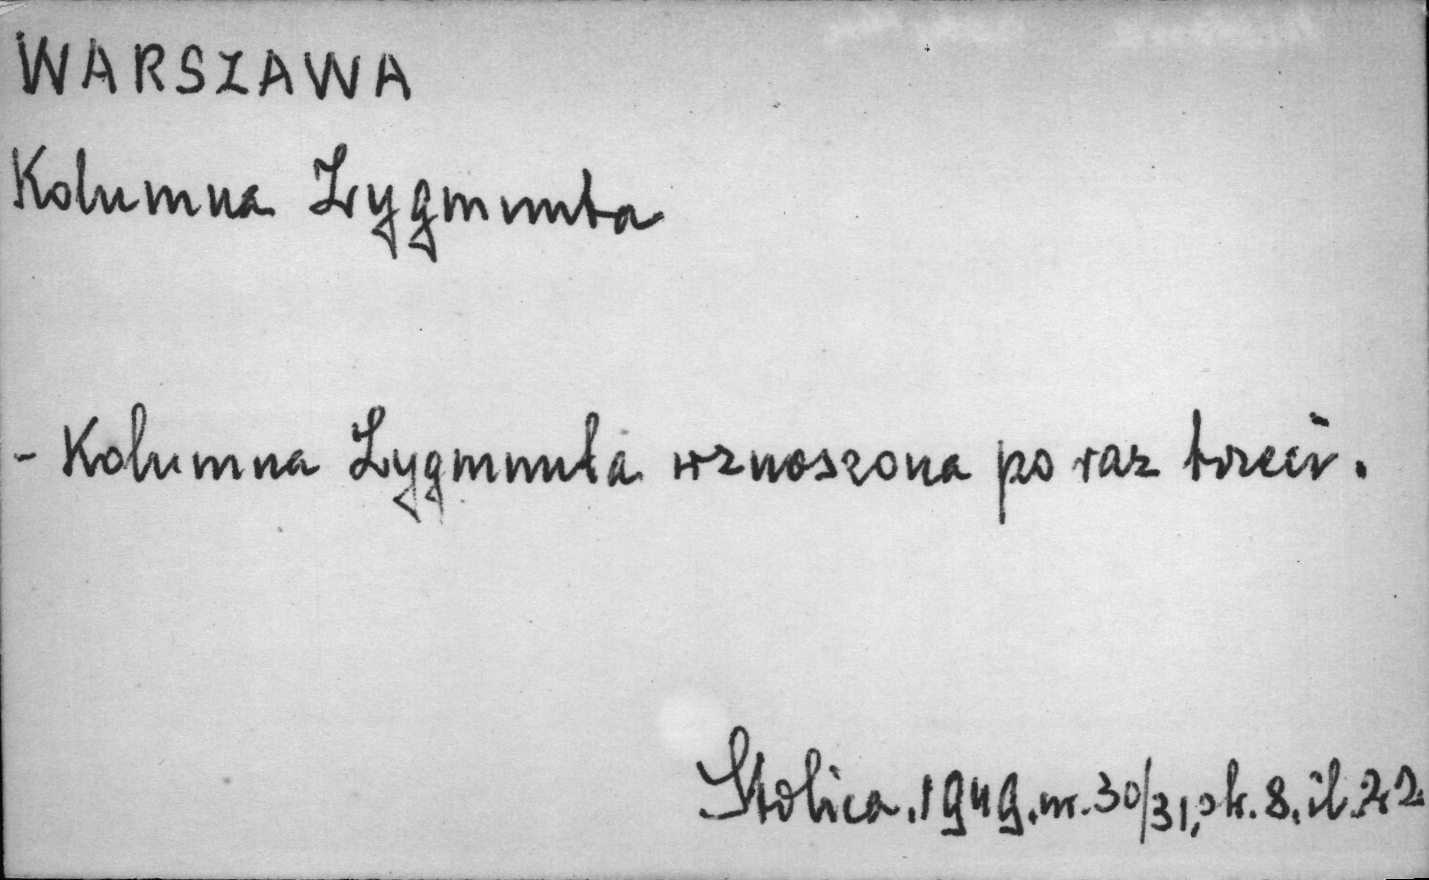 WARSZAWA
Kolumna Zygmunta
- Kolumna Zygmunta wznoszona po raz trzeci.
Stolica. 1949. nr. 30/31, str. 8. il.